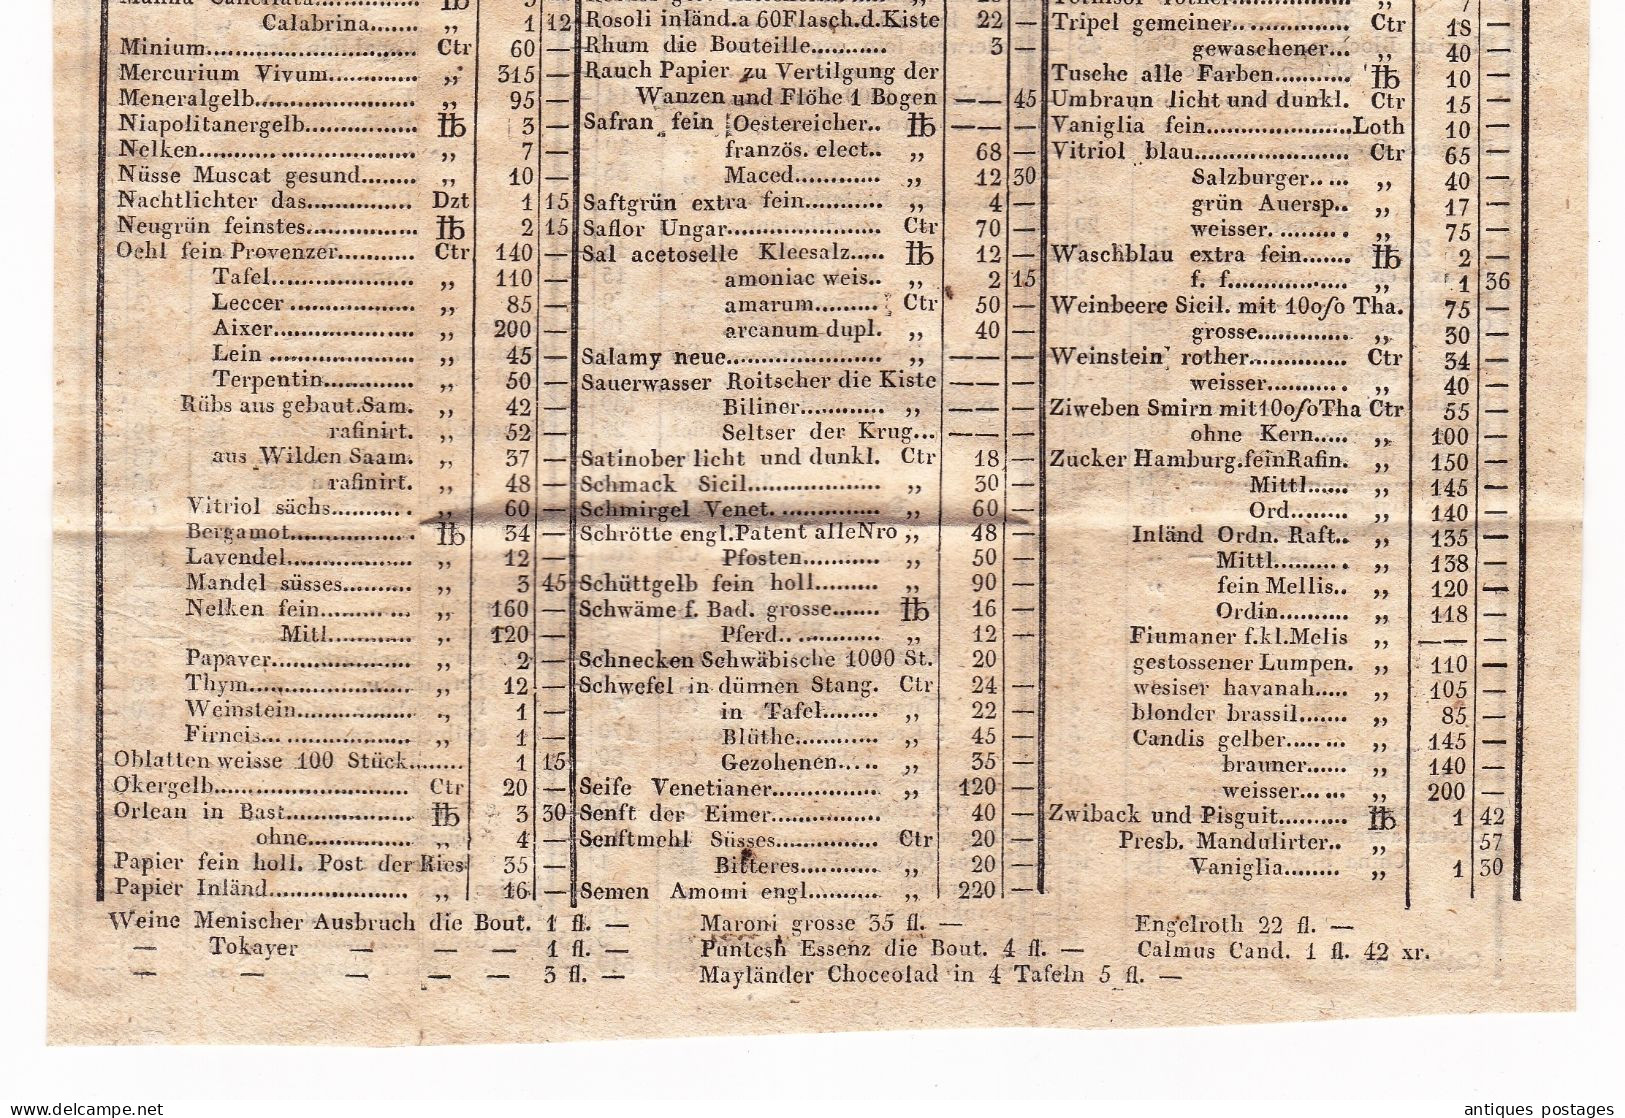 Manna Canellata........ ℔ 3 —
Calabrina....... „ 1 12
Minium........................... Ctr 60 —
Mercurium Vivum............. „ 315 —
Meneralgelb........................ „ 95 —
Niapolitanergelb................. ℔ 3 —
Nelken... ..................... „ 7 —
Nüsse Muscat gesund........ „ 10 —
Nachtlichter das................ Dzt 1 15
Neugrün feinstes................. ℔ 2 15
Oehl fein Provenzer............ Ctr 140 —
Tafel...................... „ 110 —
Leccer ................... „ 85 —
Aixer...................... „ 200 —
Lein ...................... „ 45 —
Terpentin.............. „ 50 —
Rübs aus gebaut.Sam. „ 42 —
rafinirt. „ 52 —
aus Wilden Saam. „ 37 —
rafinirt. „ 48 —
Vitriol sächs............ „ 60 —
Bergamot................... ℔ 34 —
Lavendel.................... „ 12 —
Mandel süsses........... „ 3 45
Nelken fein.............. „ 160 —
Mitl............. „ 120 —
Papaver..................... „ 2 —
Thym........................ „ 12 —
Weinstein................. „ 1 —
Firneis... .................. „ 1 —
Oblatten weisse 100 Stück......... 1 15
Okergelb............................. Ctr 20 —
Orlean in Bast................... ℔ 3 30
ohne................ „ 4 —
Papier fein holl. Post der Ries 35 —
Papier Inländ..................... „ 16 —
Rosoli inländ.a 60Flasch.d.Kiste 22 —
Rhum die Bouteille............ 3 —
Rauch Papier zu Vertilgung der
Wanzen und Flöhe 1 Bogen — — 45
Safran fein Oestereicher.. ℔ — — —
französ. elect.. „ 68 —
Maced............. „ 12 30
Saftgrün extra fein............ „ 4 —
Saflor Ungar........................ Ctr 70 —
Sal acetoselle Kleesalz..... ℔ 12 —
amoniac weis.. „ 2 15
amarum.......... Ctr 50 —
arcanum dupl. „ 40 —
Salamy neue........................ „ — — —
Sauerwasser Roitscher die Kiste — — —
Biliner............. „ — — —
Seltser der Krug... — — —
Satinober licht und dunkl. Ctr 18 —
Schmack Sicil..................... „ 30 —
Schmirgel Venet. .............. „ 60 —
Schrötte engl.Patent alleNro „ 48 —
Pfosten............ „ 50 —
Schüttgelb fein holl.......... „ 90 —
Schwäme f. Bad. grosse....... ℔ 16 —
Pferd.. ............. „ 12 —
Schnecken Schwäbische 1000 St. 20 —
Schwefel in dünnen Stang. Ctr 24 —
in Tafel......... „ 22 —
Blüthe............. „ 45 —
Gezohenen..... „ 35 —
Seife Venetianer................ „ 120 —
Senft der Eimer................. 40 —
Senftmehl Süsses............... Ctr 20 —
Bitteres............ „ 20 —
Semen Amomi engl........... „ 220 —
Tripel gemeiner ................ Ctr 18 —
gewaschener... „ 40 —
Tusche alle Farben............ ℔ 10 —
Umbraun licht und dunkl. Ctr 15 —
Vaniglia fein......................Loth 10 —
Vitriol blau........................ Ctr 65 —
Salzburger..... „ 40 —
grün Auersp.. „ 17 —
weisser. ......... „ 75 —
Waschblau extra fein....... ℔ 2 —
f. f.................. „ 1 36
Weinbeere Sicil. mit 10o/o Tha. 75 —
grosse.............. „ 30 —
Weinstein rother............... Ctr 34 —
weisser............ „ 40 —
Ziweben Smirn mit10o/oTha Ctr 55 —
ohne Kern..... „ 100 —
Zucker Hamburg.feinRafin. „ 150 —
Mittl...... „ 145 —
Ord......... „ 140 —
Inländ Ordn. Raft.. „ 135 —
Mittl............ „ 138 —
fein Mellis.. „ 120 —
Ordin.......... „ 118 —
Fiumaner f.kl.Melis „ — — —
gestossener Lumpen. „ 110 —
wesiser havanah..... „ 105 —
blonder brassil....... „ 85 —
Candis gelber......... „ 145 —
brauner...... „ 140 —
weisser...... „ 200 —
Zwiback und Pisguit.......... ℔ 1 42
Presb. Mandulirter.. „ 57
Vaniglia........ „ 1 30
Weine Menischer Ausbruch die Bout. 1 fl. — Maroni grosse 35 fl. — Engelroth 22 fl. —
— Tokayer — — — 1 fl. — Puntesh Essenz die Bout. 4 fl. — Calmus Cand. 1 fl. 42 xr.
— — — — — 3 fl. — Mayländer Choceolad in 4 Tafeln 5 fl. —
antiques postages